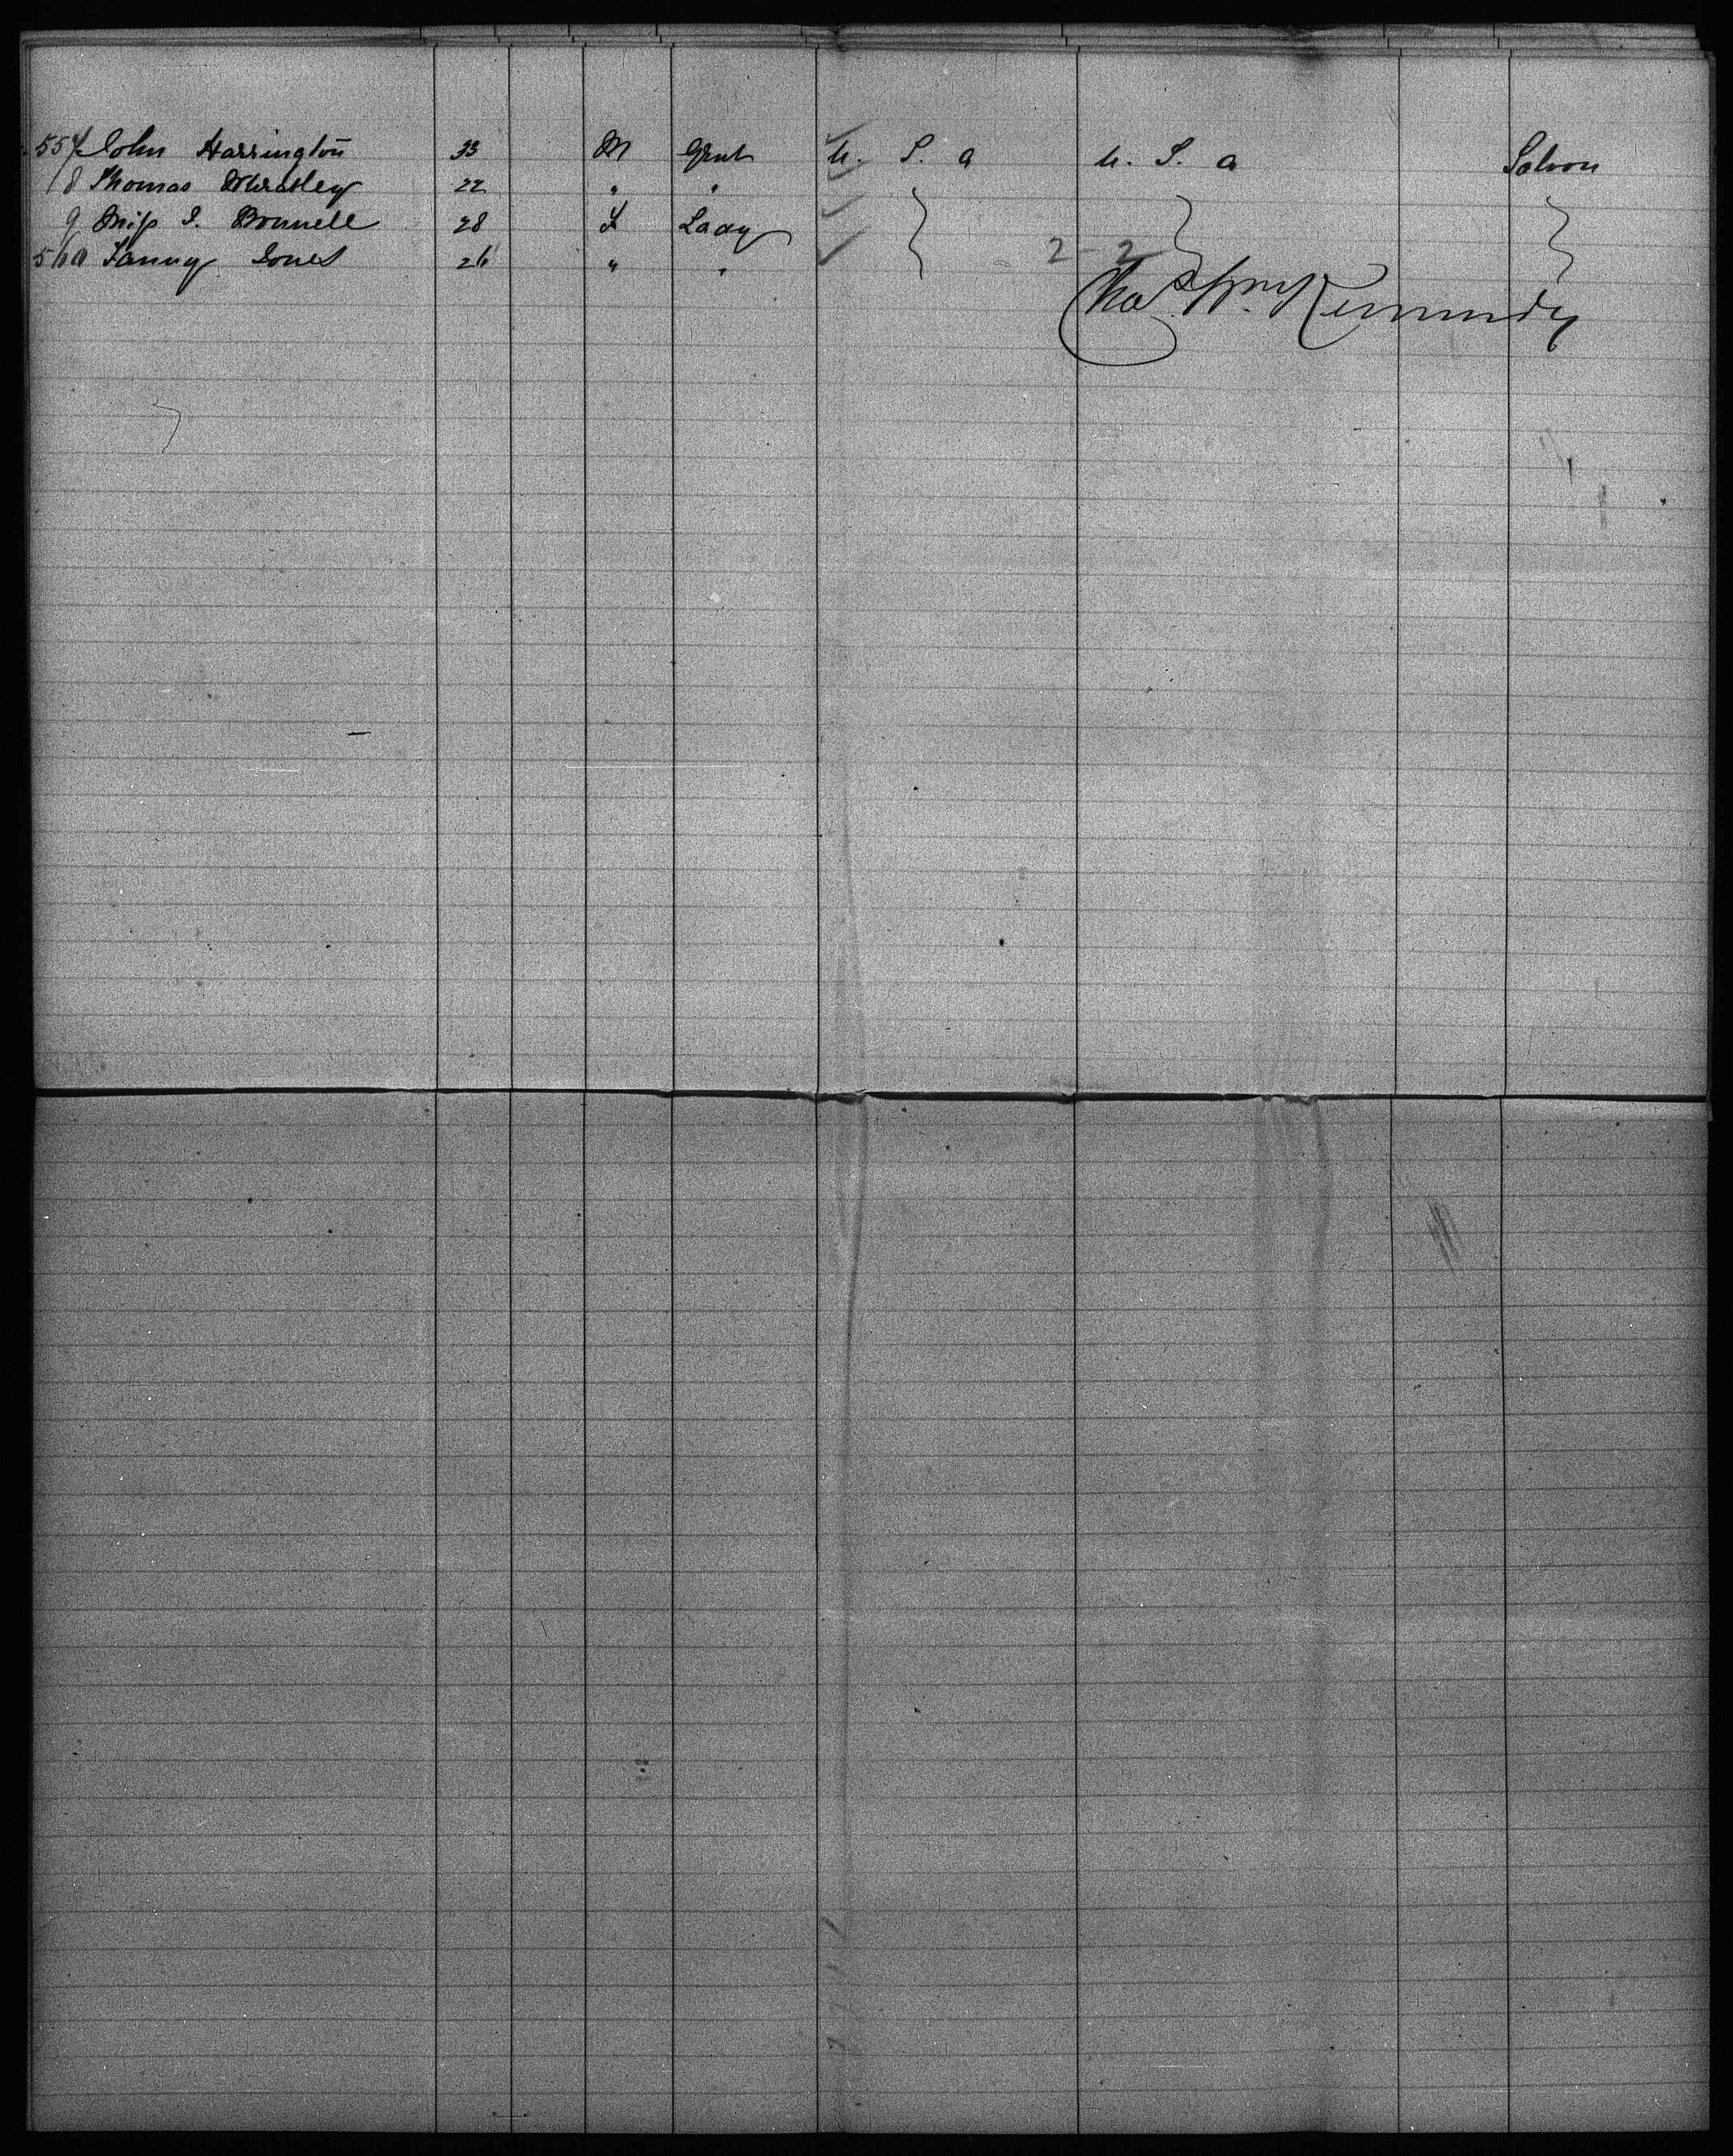 557 John Harrington 33 M Gent U. S. a U. S. a Saloon
8 Thomas Wheatley 22 " "
9 Miss I. Bonnell 28 F Lady
560 Fanny Jones 26 " " 2-2
Kennedy